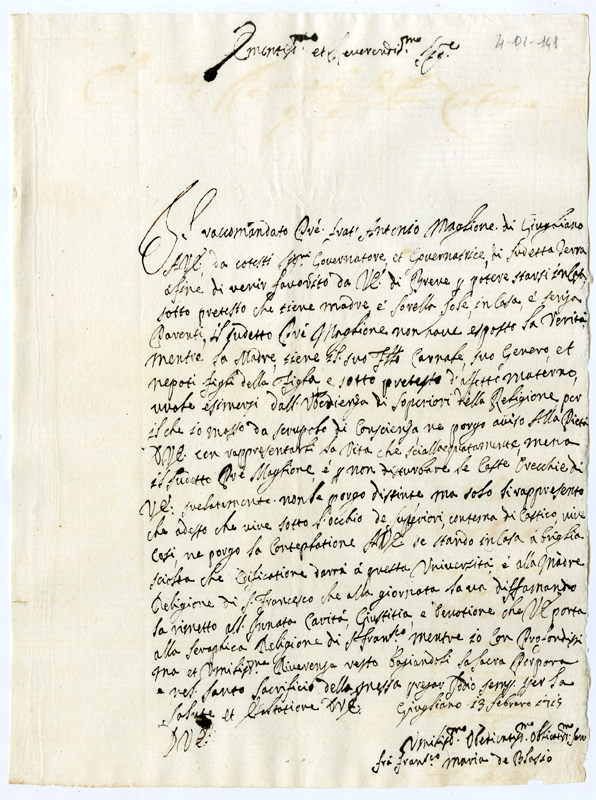 4-01-141
Eminentiss.mo et Reverendis.mo Sig.re
raccomandato Pré. frat. Antonio Maglione di Giugliano
A V.E. da cotesti Governatore, et Governatrice, di sudetta Terra
afine di venir favorito da V.E. di Breve potere starsi in Casa
sotto pretesto che tiene madre, e sorella sole, in Casa, e senza
Parenti, il sudetto Pré Maglione non have esposto la Verità
mentre la Madre, tiene suo carnale, suo Genero, et
nepoti figli della figla e sotto pretesto d'affetto materno,
vuole esimersi dall'Ubedienza di Superiori della Religione, per
il che io mosso da scrupolo di Conscienza ne porgo aviso alla
D.V.E. con rappresentarli la Vita che sciallacquatamente mena
il sudetto Pré Maglione e non disturbare le Caste orecchie di
V.E. svelatamente non le porgo distinte ma solo li rappresento
che adesso che vive sotto l'occhio de superiori, con tema di Castico vive
così, ne porgo la Conteplatione A V.E. se stando in Casa à briglia
sciolta che Edificatione darrà à questa Università é alla Madre
Religione di S. Francesco che alla giornata la va diffamando
la rimetto all'Innata Carità, Giustitia, e devotione che V.E. porta
alla Seraphica Religione di S. Franc.o mentre io con Profondissi
ma et Umiliss.ma Riverenza resto bagiandoli la Sacra Porpora
e nel santo Sacrificio della messa pregar Iddio sempre per la
Salute et Esaltatione D.V.E. Giugliano 13 Febraro 1715
D.V.E.
Umiliss.mo Obedientiss.mo Obligatiss.mo
frà Franc.o Maria de Blasio